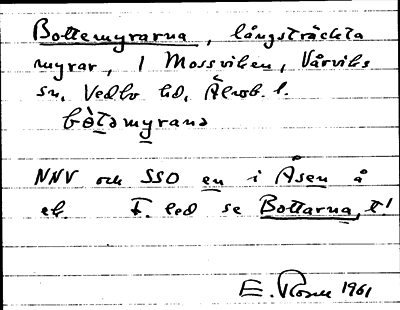 Bottemyrarna, långsträckta
myrar, 1 Mossviken, Vårviks
sn, Vedbo hd, Älvsb. l.
bòtəmyrana
NNV och SSO en i Åsen å
ek. F. led se Bottarna, t!
E. Rosen 1961